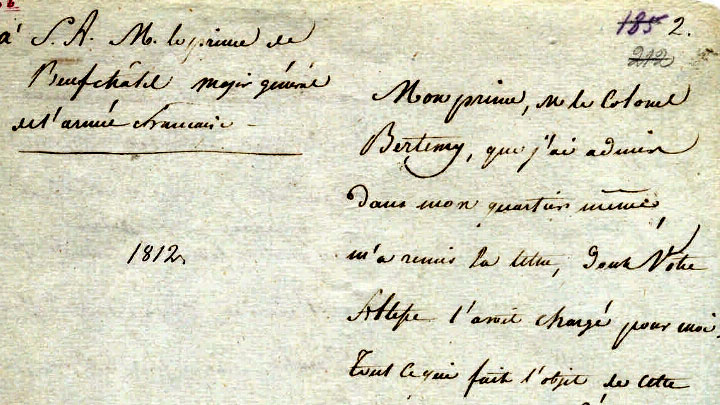 185 2.
212
à S. A. M. le prince de
Neufchâtel major général
de l'armée francaise
1812,
Mon prince, M le Colonel
Bertemy, que j'ai admis
dans mon quartier même,
m'a remis la lettre, dont Votre
Altesse l'avoit chargé pour moi.
Tout ce qui fait l'objet de cette